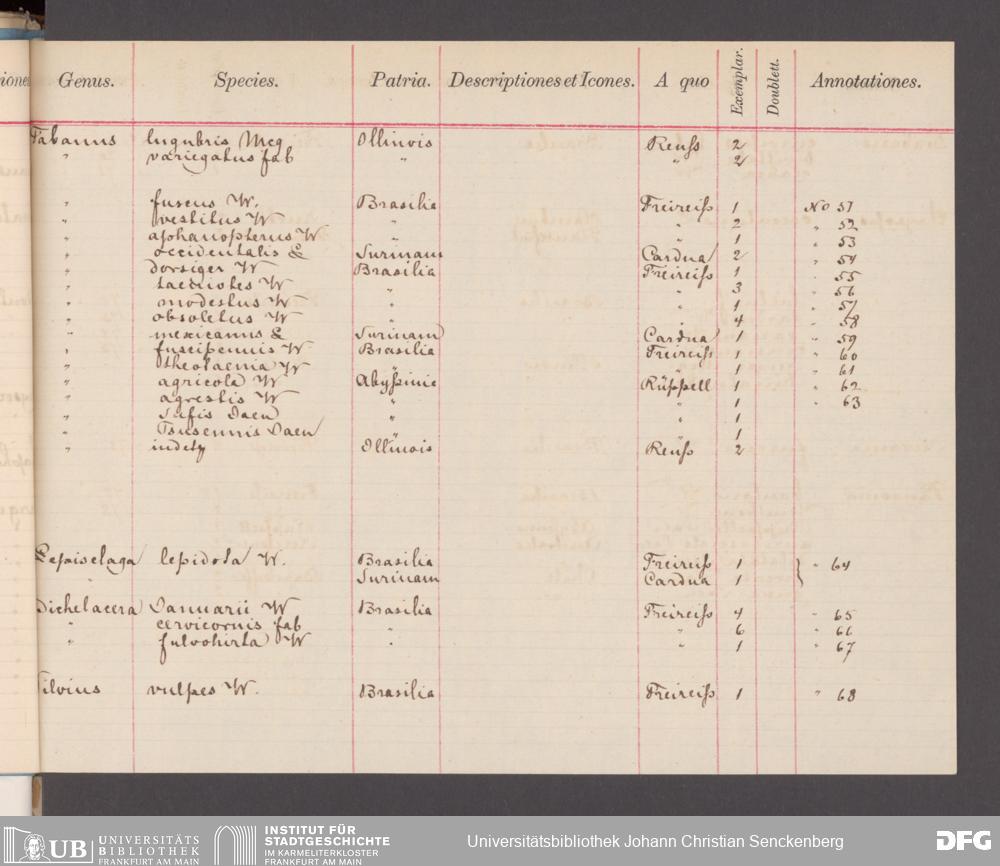 Genus. Species. Patria. Descriptiones et Icones. A quo Exemplar. Doublett. Annotationes.
Tabanus lugubris Mcq Illinois Reuſs 2
" variegatus fab " " 2
" fuscus W. Brasilia Freireiſs 1 No 51
" vestitus W " " 2 " 52
" aphanopterus W " " 1 " 53
" occidentalis L Surinam Cardua 2 " 54
" dorsiger W Brasilia Freireiſs 1 " 55
" taeniotes W " " 3 " 56
" modestus W " " 1 " 57
" obsoletus W " " 4 " 58
" mexicanus L Surinam Cardua 1 " 59
" fuscipennis W Brasilia Freireiſs 1 " 60
" theotaenia W " " 1 " 61
" agricola W Abyſsinie Rüppell 1 " 62
" agrestis W " " 1 " 63
" " " 1
" " " 1
" Illinois Reuſs 2
Lepiselaga lepidota W. Brasilia Freireiſs 1 } " 64
" Surinam Cardua 1
Dichelacera Januarii W Brasilia Freireiſs 4 " 65
" cervicornis fab " " 6 " 66
" fulvohirta W " " 1 " 67
Silvius vulpes W. Brasilia Freireiſs 1 " 68
UB UNIVERSITÄTS
BIBLIOTHEK
FRANKFURT AM MAIN
INSTITUT FÜR
STADTGESCHICHTE
IM KARMELITERKLOSTER
FRANKFURT AM MAIN
Universitätsbibliothek Johann Christian Senckenberg
DFG